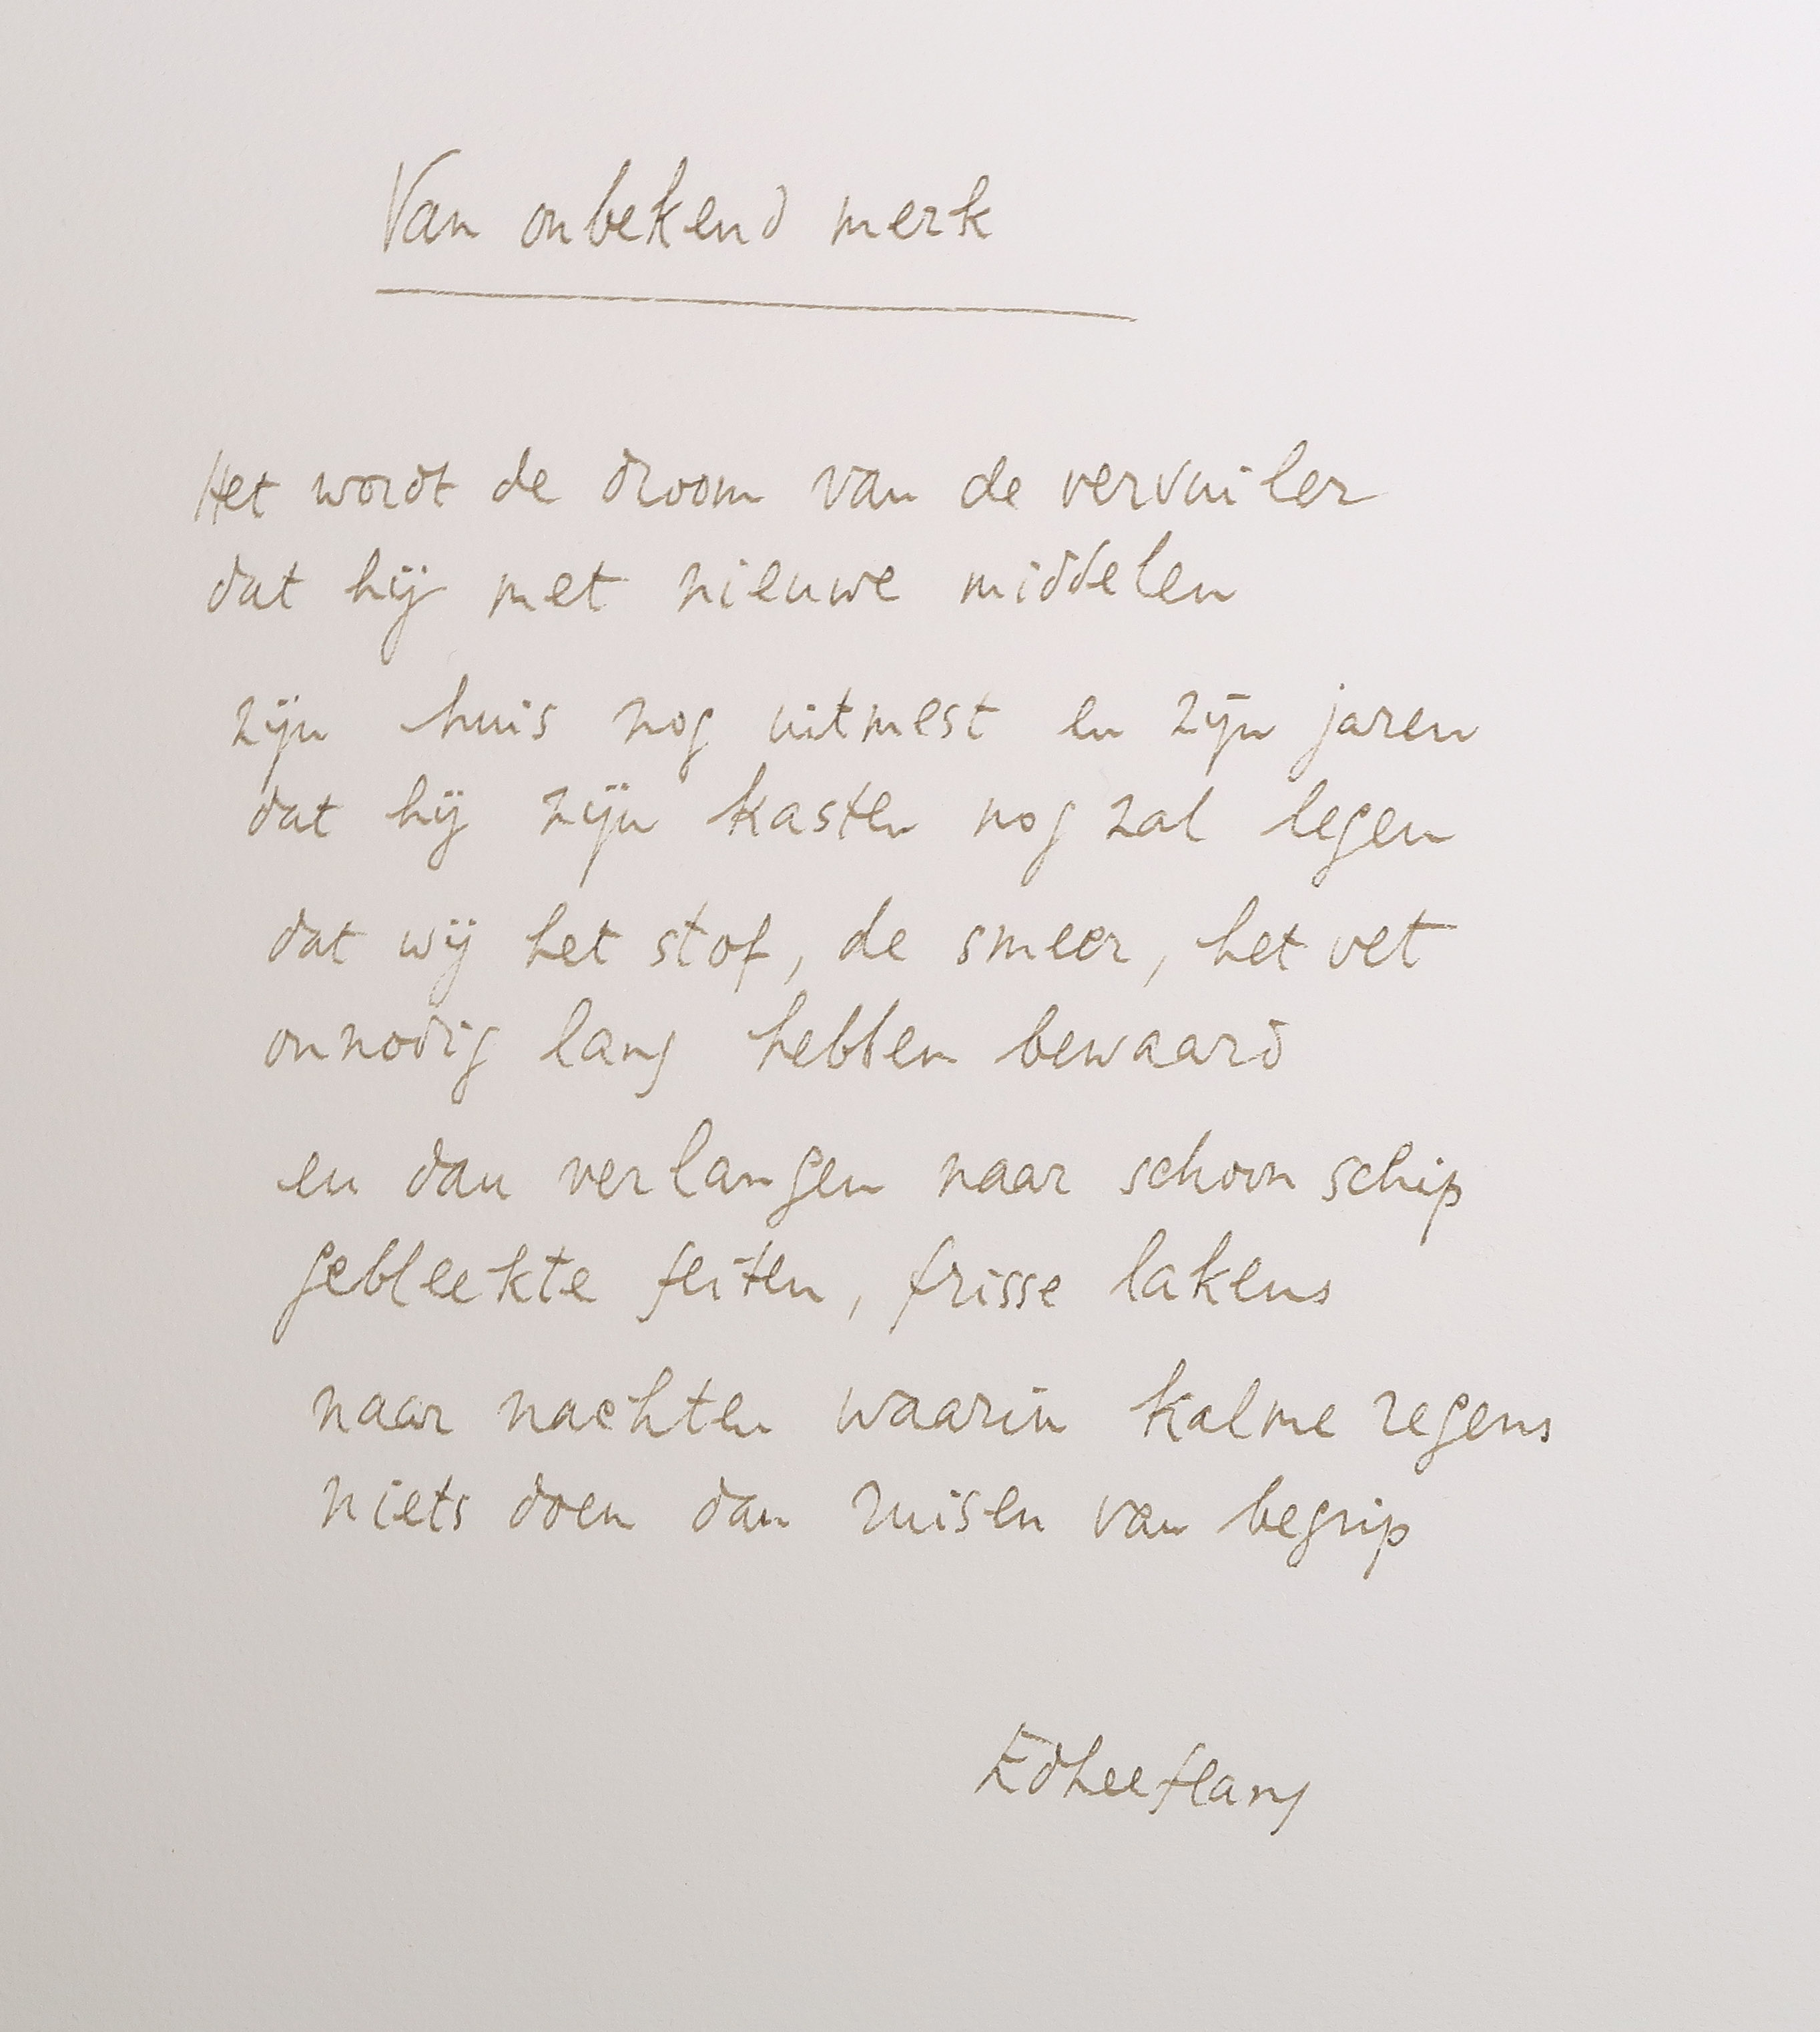 Van onbekend merk
Het wordt de droom van de vervuiler
dat hij met nieuwe middelen
zijn huis nog uitmest en zijn jaren
dat hij zijn kasten nog zal legen
dat wij het stof, de smeer, het vet
onnodig lang hebben bewaard
en dan verlangen naar schoon schip
gebleekte feiten, frisse lakens
naar nachten waarin kalme regens
niets doen dan ruisen van begrip
Ed Leeflang